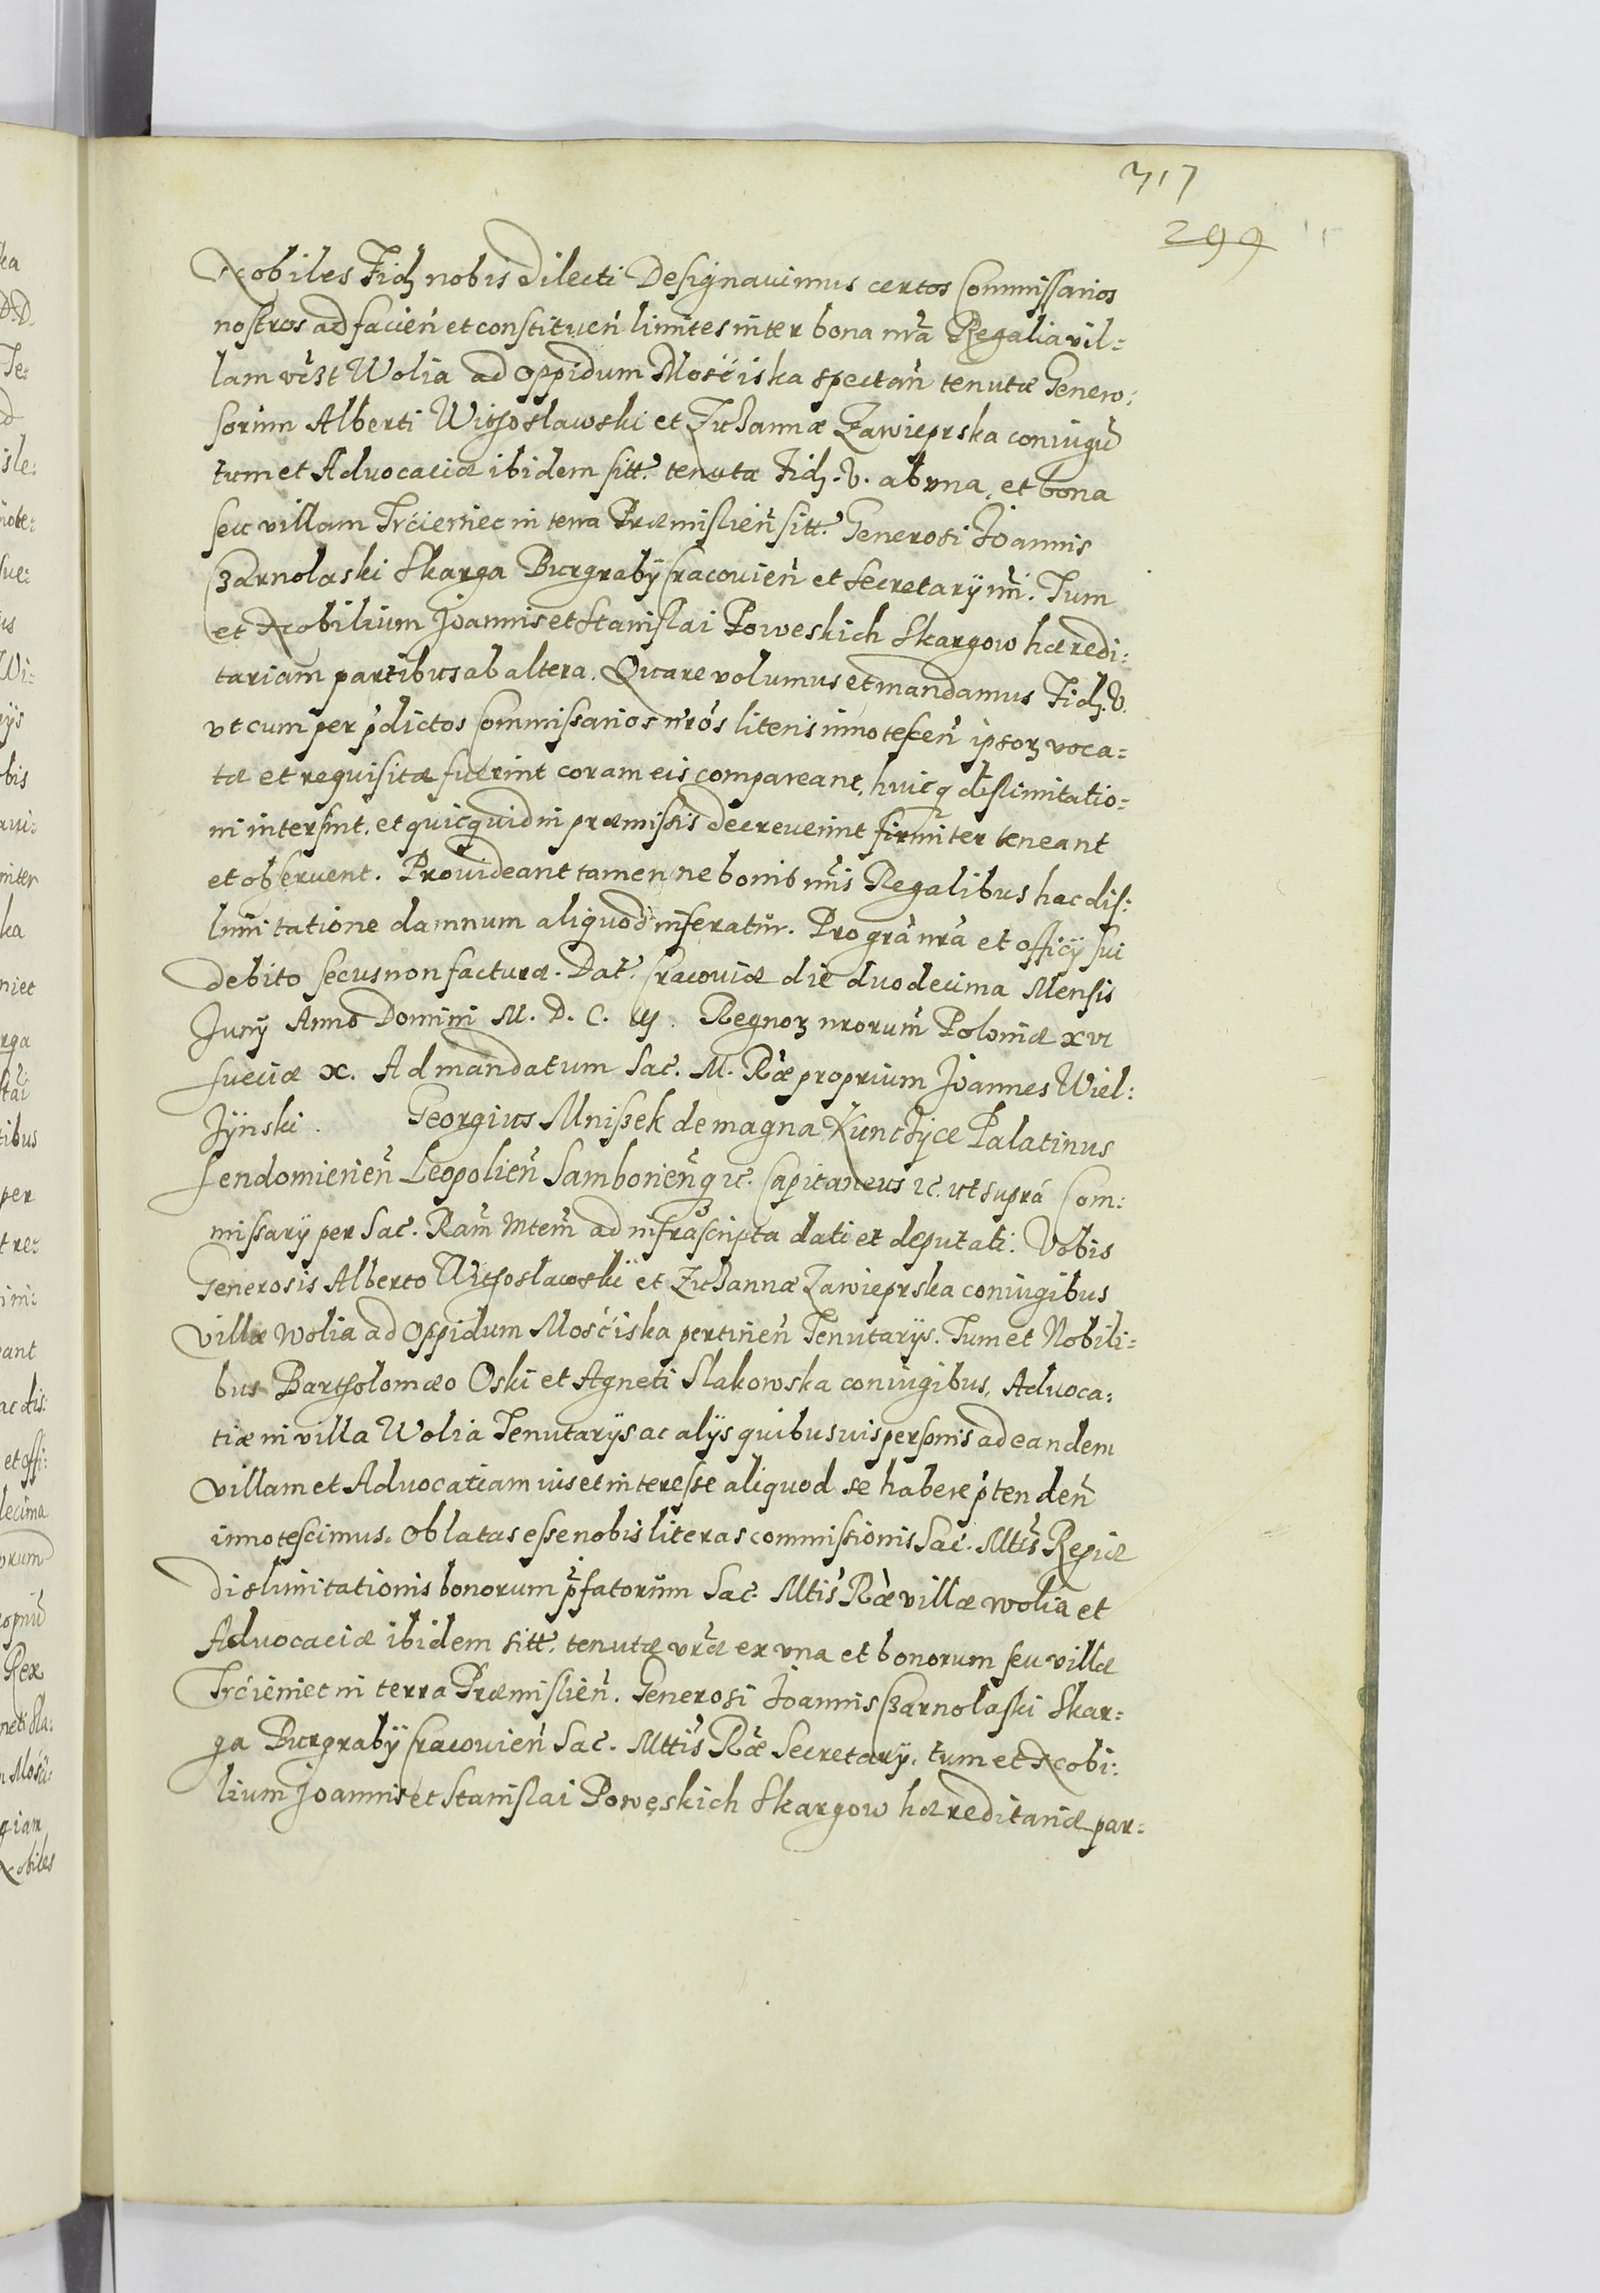 317
299
Nobiles Fidẽ nobis dilecti Designauimus certos Commissarios
nostros ad facień et constituen̄ limites inter bona nr̃a Regalia vil=
lam vc̃zt Wolia ad oppidum Mościska spectan̄ tenutæ Genero:
sorum Alberti Withosławski et Zuhannæ Zawieprska coniugũ
tum et Aduocaciæ ibidem sitt. tenutæ Fid. V. ab vna, et bona
seu villam Trcieniec in terra Præmislien̄ sitt. Generosi Joannis
Czarnolaski Skarga Burgrabÿ Cracouien̄ et Secretarÿ nr̃i. Tum
et Nobilium Joannis et Stanislai Poweskich Skargow hæredi:
tariam partibus ab altera. Quare volumus et mandamus Fid. V.
vt cum per p̃dictos Commissarios nr̃os literis innotescen̄ ipsoꝝ voca=
tæ et requisitæ fuerint coram eis compareant, huicq dislimitatio=
ni intersint, et quicquid in præmissis decreuerint firmiter teneant
et obseruent. Prouideant tamen ne bonis nr̃is Regalibus hac dis:
limitatione damnum aliquod inferatur. Pro gr̃a nr̃a et officÿ sui
debito secus non facturæ. Dat. Cracouiæ die duodecima Mensis
Junÿ Anno Domini M. D. C. iij. Regnoꝝ nrorum Poloniæ xvi
Sueciæ x. Ad mandatum Sac. M. Ræ proprium Joannes Wiel:
Jÿnski. Georgius Mnissek de magna Kunchÿce Palatinus
Sendomirien̄ Leopolien̄ Samborien̄q ꝛc. Capitaneus ꝛc. ut supra Com:
missarÿ per Sac. Ram̃ Mtem̃ ad infrascripta dati et deputati. Vobis
Generosis Alberto Withosławski et Zuhannæ Zawieprska coniugibus
villæ Wolia ad oppidum Mościska pertinen̄ Tenutarÿs. Tum et Nobili=
bus Bartholomæo Oski et Agneti Slakowska coniugibus, Aduoca:
tiæ in villa Wolia Tenutarÿs ac alÿs quibusuis personis ad eandem
villam et Aduocatiam ius et interesse aliquod se habere p̃tenden̄
innotescimus. Oblatas esse nobis literas commissionis Sac. Mtis Regiæ
dislimitationis bonorum p̃fatorum Sac. Mtis Ræ villæ Wolia et
Aduocaciæ ibidem sitt. tenutæ vr̃æ ex vna et bonorum seu villæ
Trcieniec in terra Præmislien̄. Generosi Joannis Czarnolaski Skar=
ga Burgrabÿ Cracouien̄ Sac. Mttis Ræ Secretarÿ. tum et Nobi:
lium Joannis et Stanislai Powęskich Skargow hæreditariæ par=